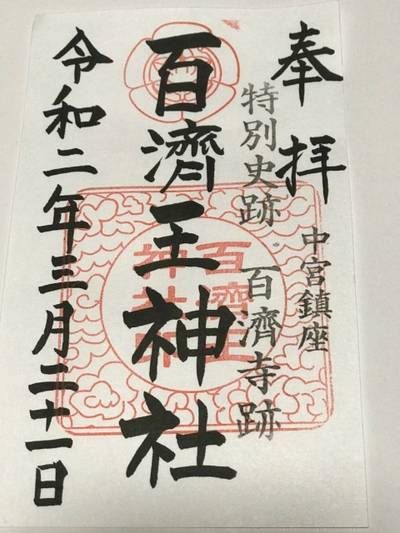 奉拝
中宮鎮座
特別史跡 百濟寺跡
百濟王神社
百濟王
神社印
令和二年三月二十一日